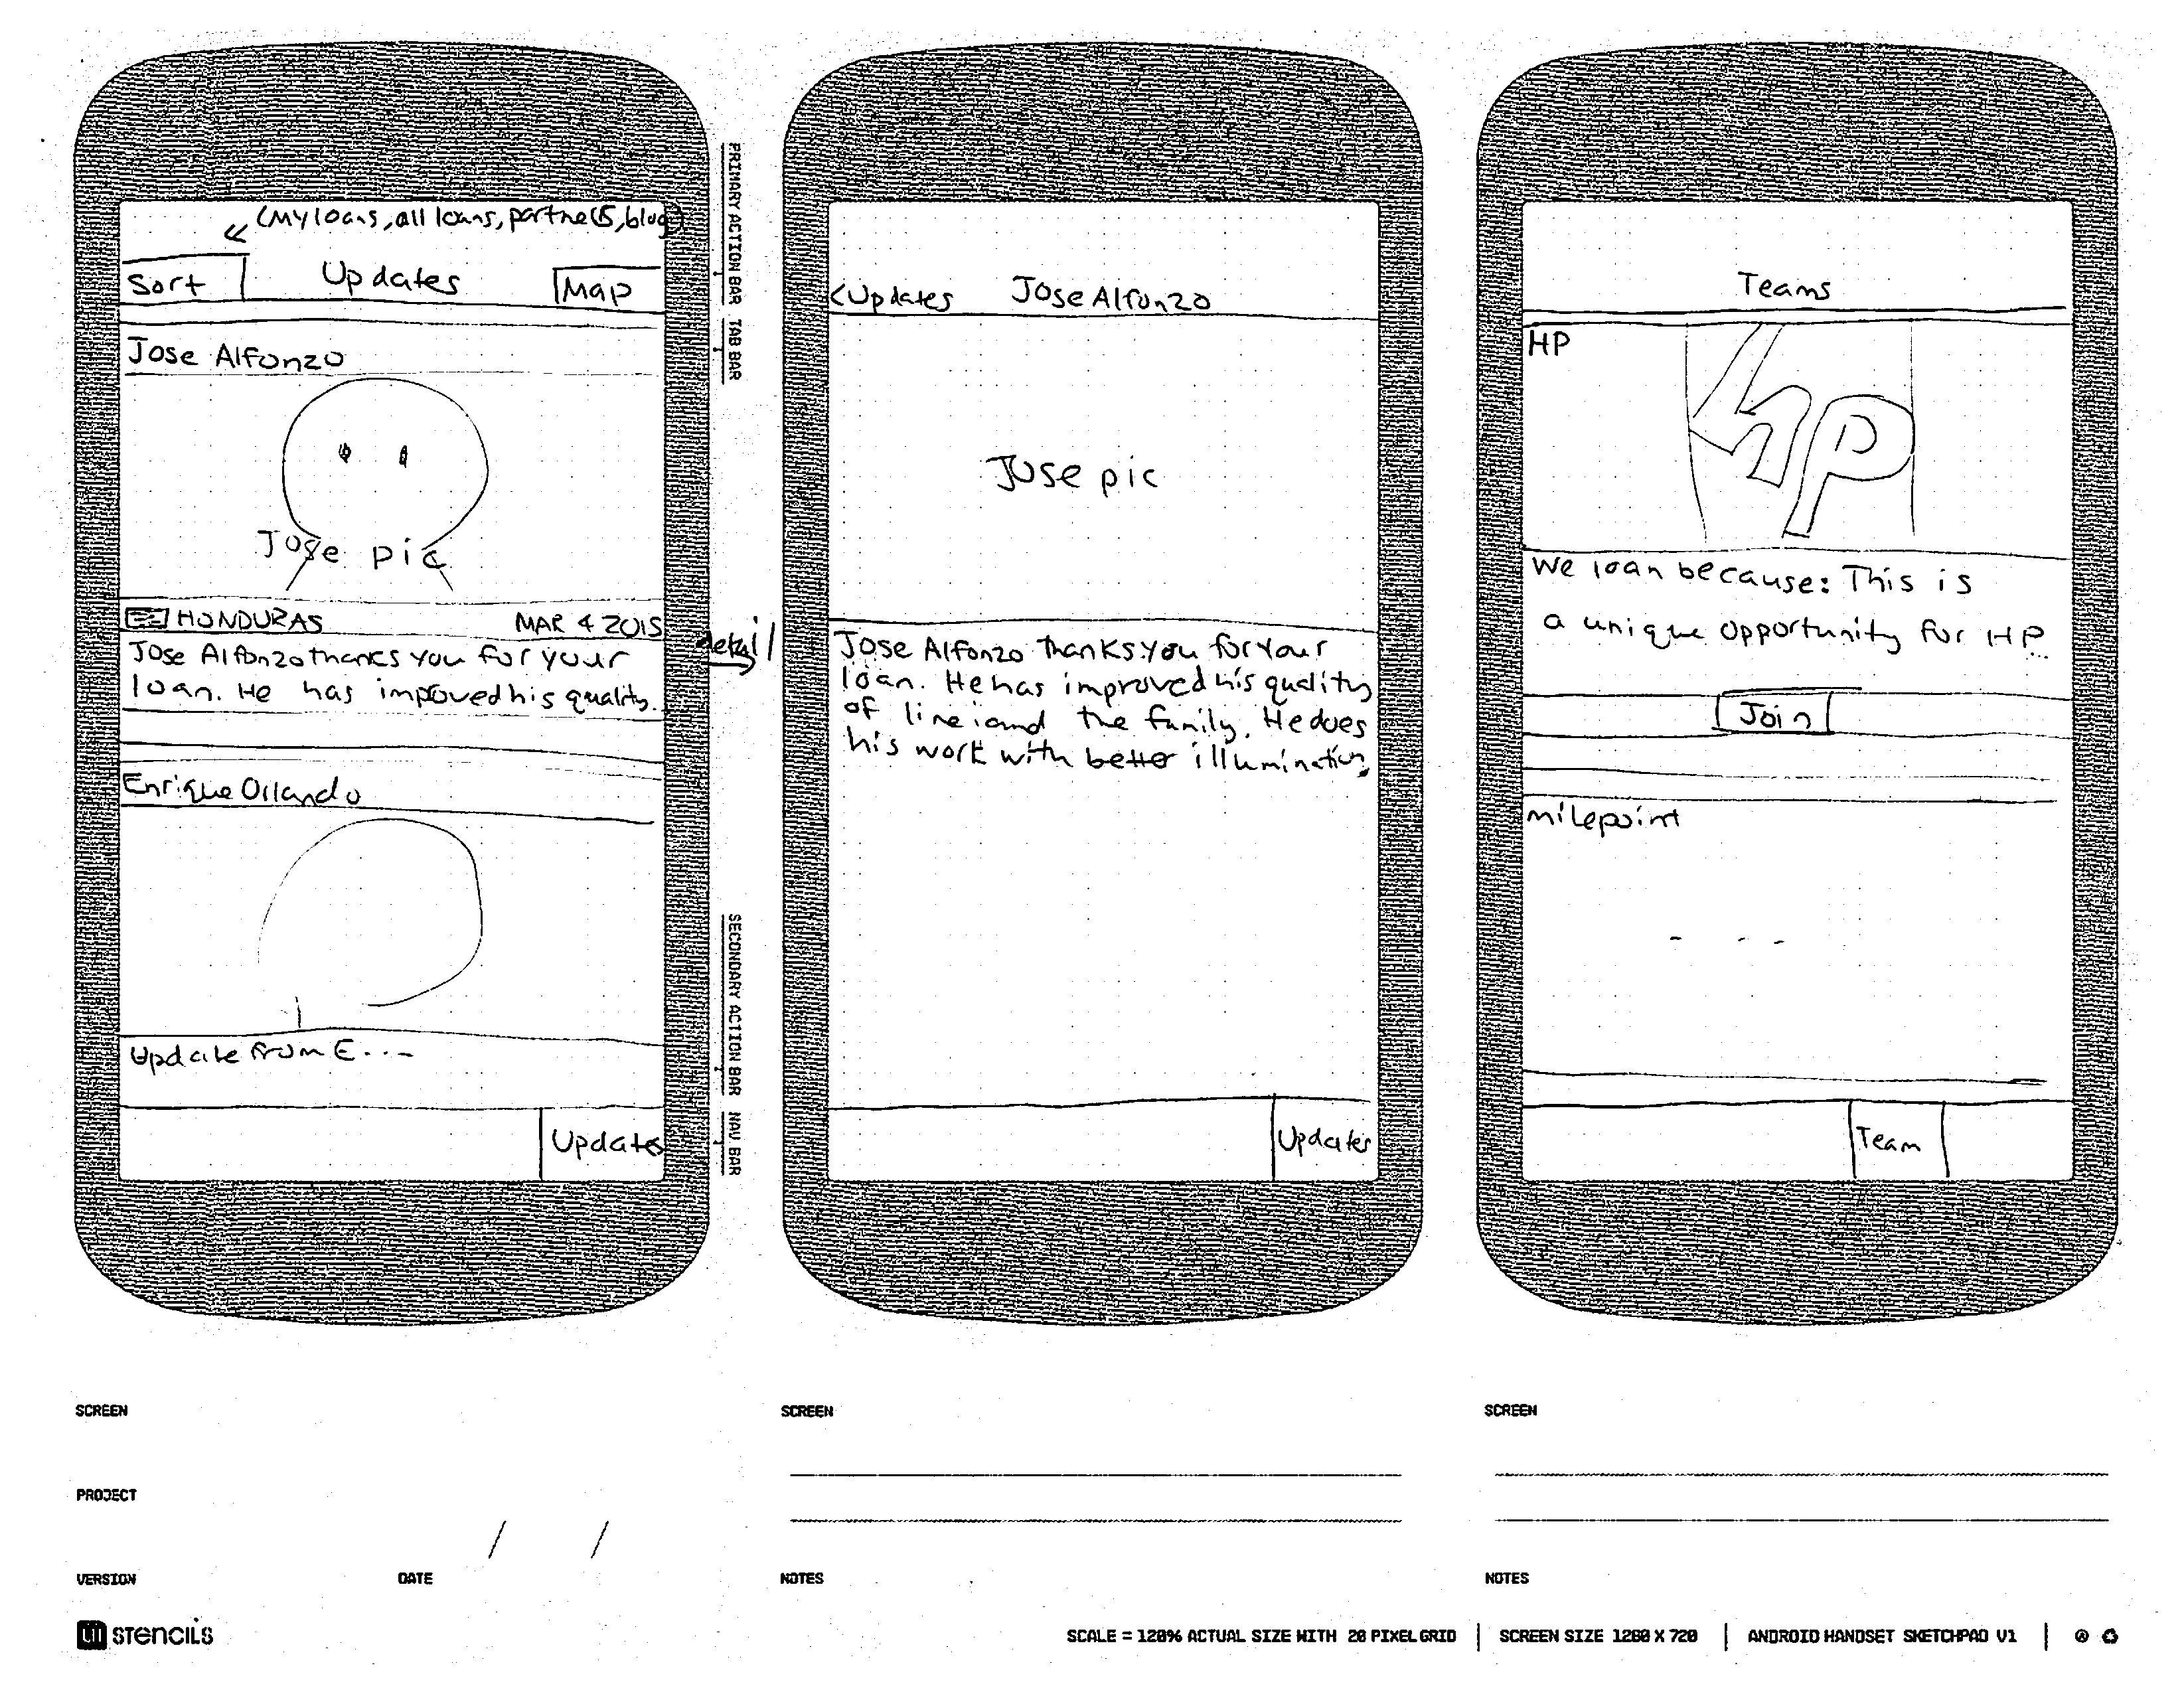 (My loans, all loans, partners, blog)
Sort
Updates
Map
Jose Alfonzo
Jose pic
HONDURAS
MAR 4 2015
Jose Alfonzo thanks you for your
loan. He has improved his quality.
Enrique Orlando
Update from E...
Updates
PRIMARY ACTION BAR
TAB BAR
detail
SECONDARY ACTION BAR
NAV BAR
<Updates
Jose Alfonzo
Jose pic
Jose Alfonzo thanks you for your
loan. He has improved his quality
of line and the family. He does
his work with better illumination.
Updates
Teams
HP
hp
We loan because: This is
a unique opportunity for HP...
Join
milepoint
Team
SCREEN
PROJECT
VERSION
DATE / /
SCREEN
NOTES
SCREEN
NOTES
UI STENCILS
SCALE = 120% ACTUAL SIZE WITH 20 PIXEL GRID | SCREEN SIZE 1280 X 720 | ANDROID HANDSET SKETCHPAD V1 |